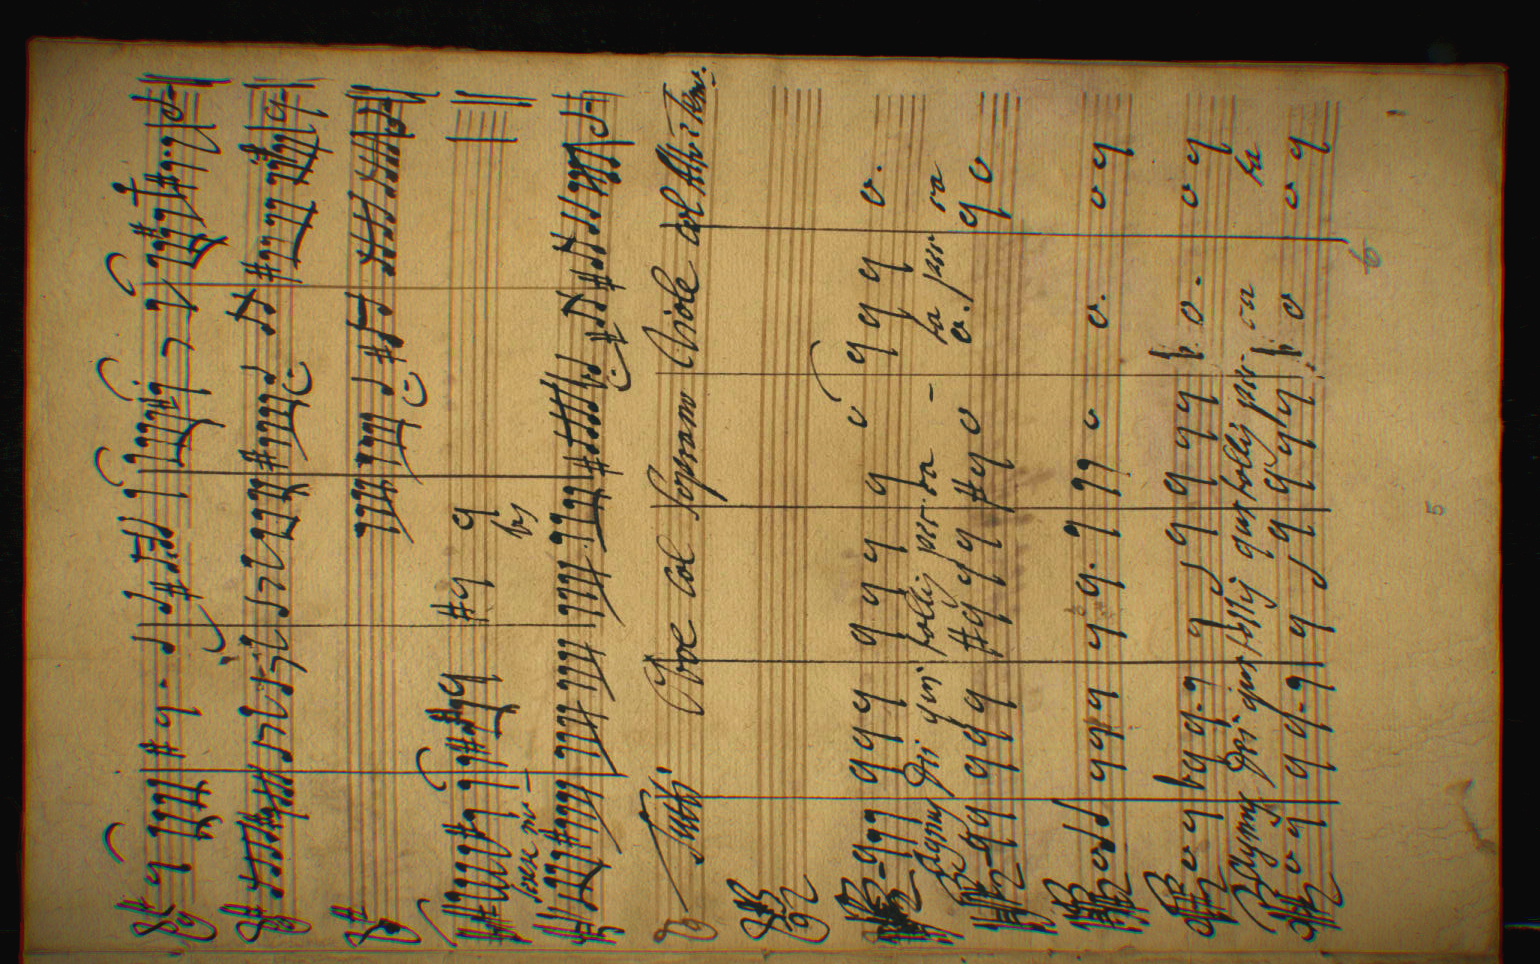 bis
Tutti Oboe col Soprano Viole col Alto è Ten:
Agnus Dei qui tollis pec-ca - ta pec ca
Agnus Dei qui tollis qui tollis pec- ca ta
5
6